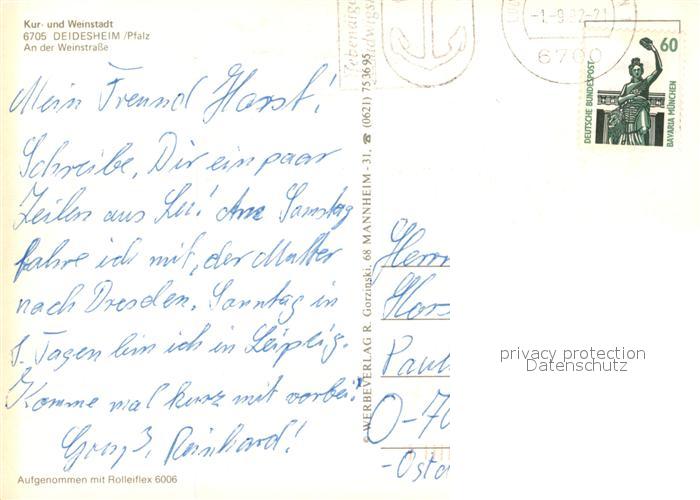 Kur- und Weinstadt
6705 DEIDESHEIM /Pfalz
An der Weinstraße
Mein Freund Horst!
Schreibe Dir ein paar
Zeilen aus Lu! Am Samstag
fahre ich mit der Mutter
nach Dresden. Sonntag in
8 Tagen bin ich in Leipzig.
Komme mal kurz mit vorbei!
Gruß, Reinhard!
Aufgenommen mit Rolleiflex 6006
© WERBEVERLAG R. Gorzinski, 68 MANNHEIM - 31, ☎ (0621) 753695
6700
60
DEUTSCHE BUNDESPOST
BAVARIA MÜNCHEN
Herrn
Hors
Paul
O-70
-Osta
privacy protection
Datenschutz